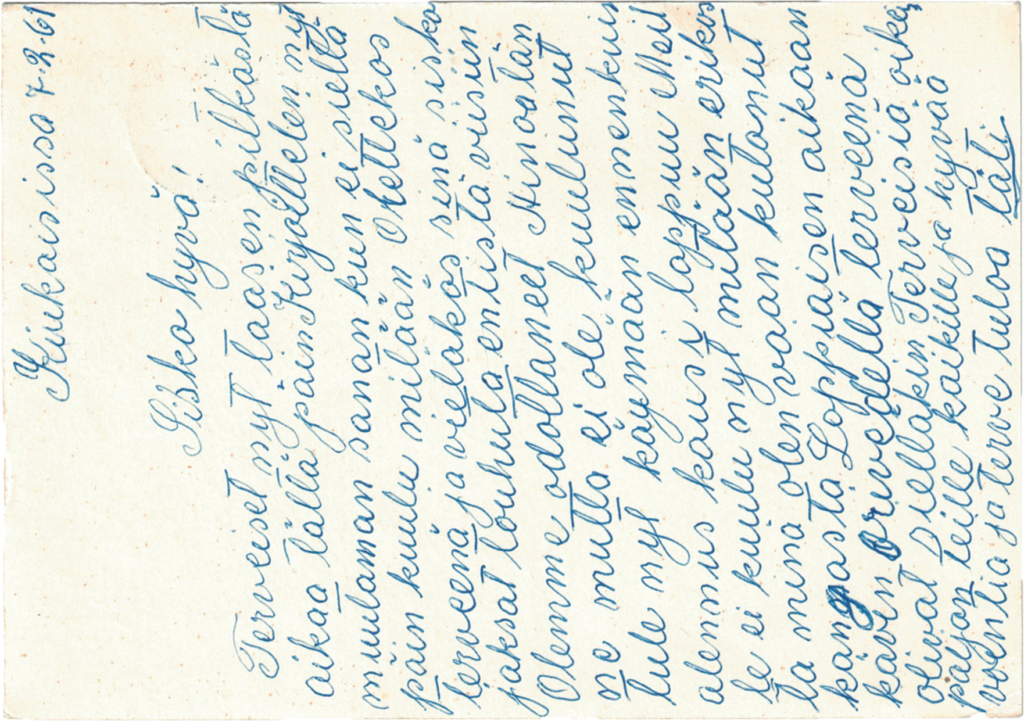 Kiukaisissa 7.2.61
Sisko hyvä!
Terveiset nyt taasen pitkästä
aikaa täältä päin Kirjottelen nyt
muutaman sanan kun ei sieltä
päin kuulu mitään Oletteko
terveenä ja vieläkös sinä sisko
jaksat touhuta entistä viisiin
Olemme odottaneet Hinoalan
ne mutta ei ole kuulunut
tule nyt käymään ennenkuin
alennus kausi loppuu Meil
le ei kuulu nyt mitään erikos
ta minä olen vaan kutonut
kangasta Loppiaisen aikaan
kävin Orivedellä terveenä
olivat siellakin Terveisiä oikein
paljon teille kaikille ja hyvää
vointia ja terve tuloa täti.